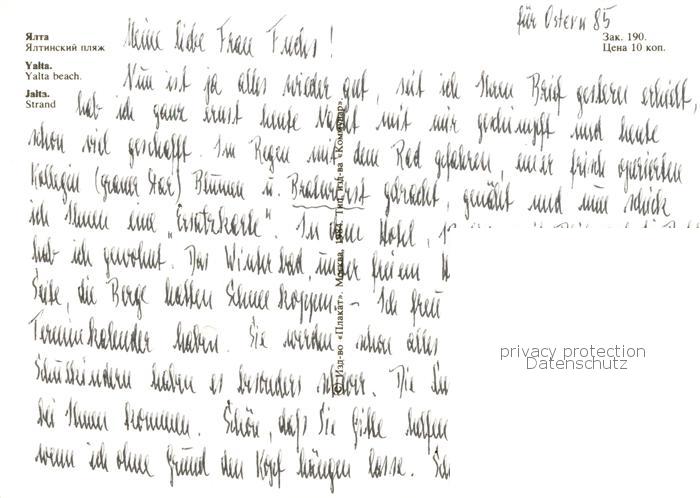 für Ostern 85
Ялта
Ялтинский пляж
Yalta.
Yalta beach.
Jalta.
Strand
Зак. 190.
Цена 10 коп.
Meine liebe Frau Fuchs!
Nun ist ja alles wieder gut, seit ich Ihren Brief gestern erhielt,
hab ich ganz ernst heute Nacht mit mir geschimpft und heute
schon viel geschafft. Im Regen mit dem Rad gefahren, einer frisch operierten
Kollegin (grauer Star) Blumen u. Bratwurst gebracht, genäht und nun schicke
ich Ihnen eine "Ersatzkarte". In dem Hotel,
hab ich gewohnt. Das Winterbad, unter freiem
Seite, die Berge hatten Schneekoppen. – Ich freu
Terminkalender haben. Sie werden schon alles
Schulkindern haben es besonders schwer. Die
bei Ihnen kommen. Schön, daß Sie Gitte halfen
wenn ich ohne Grund den Kopf hängen lasse.
© Изд-во «Плакат». Москва, 1984. Тип. изд-ва «Коммунар».
privacy protection
Datenschutz